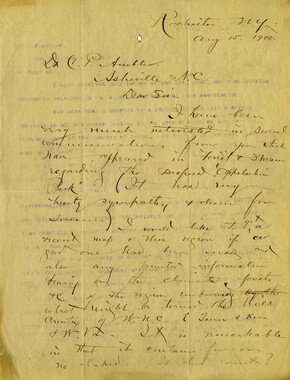 Rochester N.Y.
Aug 15. 1900.
Dr C. P. Ambler.
Asheville N.C.
Dear Sir
I have been
very much interested in several
communications from you which
have appeared in Forest & Stream
regarding the proposed Appalachian
Park. (It has my
hearty sympathy & esteem for
success) I would like to get a
recent map of this region if a
good one has been issued and
also any printed information
on the climate, forests
&c of the region embracing
what might be termed the Wild
Country of W.N.C. E Tenn &
It is remarkable
in that it contains few or
no lakes. Is this correct?